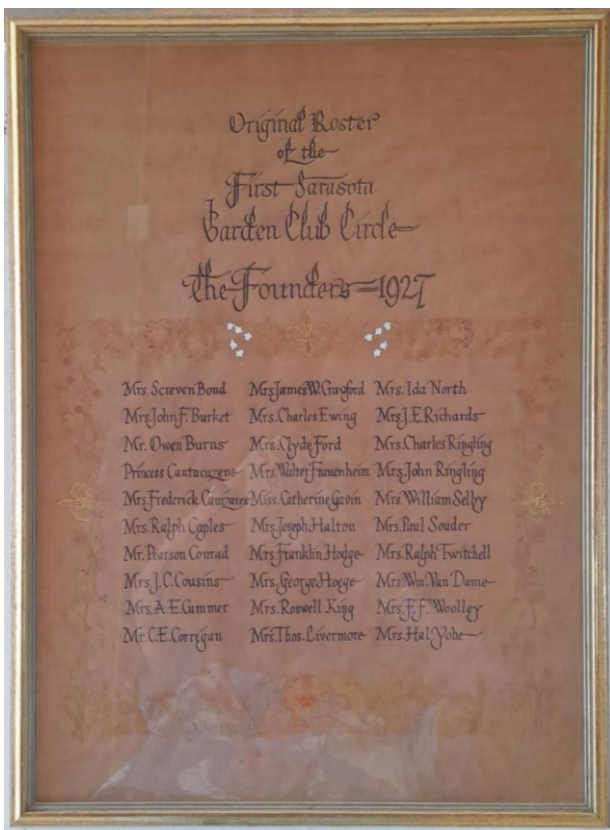 Original Roster
of the
First Sarasota
Garden Club Circle
The Founders=1927
Mrs Screven Bond
Mrs. John F. Burket
Mr. Owen Burns
Princess Cantacuzene
Mrs. Frederick
Mrs. Ralph Caples
Mr. Pearson Conrad
Mrs. J. C. Cousins
Mrs. A. E. Cummer
Mr. C. E. Corrigan
Mrs. James W. Crawford
Mrs. Charles Ewing
Mrs. Clyde Ford
Mrs. Walter Frauenheim
Miss. Catherine Gavin
Mrs. Joseph Halton
Mrs. Franklin Hodge
Mrs. George Hoege
Mrs. Roswell King
Mrs. Thos. Livermore
Mrs. Ida North
Mrs. J. E. Richards
Mrs. Charles Ringling
Mrs. John Ringling
Mrs. William Selby
Mrs. Paul Souder
Mrs. Ralph Twitchell
Mrs. Wm. Van Dame
Mrs. F. F. Woolley
Mrs. Hal Yohe